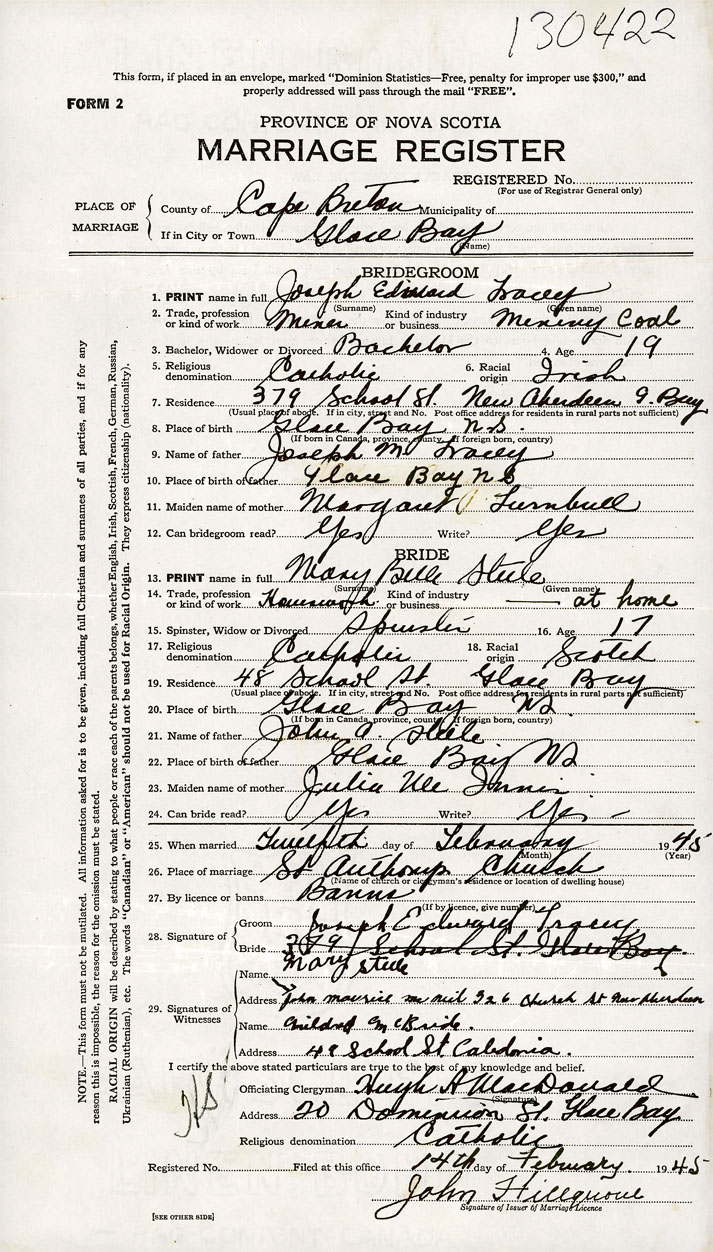 130422
This form, if placed in an envelope, marked “Dominion Statistics—Free, penalty for improper use $300,” and
properly addressed will pass through the mail “FREE”.
FORM 2
PROVINCE OF NOVA SCOTIA
MARRIAGE REGISTER
REGISTERED No.
(For use of Registrar General only)
PLACE OF MARRIAGE
County of Cape Breton Municipality of
If in City or Town Glace Bay
(Name)
BRIDEGROOM
1. PRINT name in full Joseph Edward Tracey
(Surname) (Given name)
2. Trade, profession or kind of work Miner Kind of industry or business Mining Coal
3. Bachelor, Widower or Divorced Bachelor 4. Age 19
5. Religious denomination Catholic 6. Racial origin Irish
7. Residence 379 School St. New Aberdeen G. Bay
(Usual place of abode. If in city, street and No. Post office address for residents in rural parts not sufficient)
8. Place of birth Glace Bay N.S.
(If born in Canada, province, county. If foreign born, country)
9. Name of father Joseph M Tracey
10. Place of birth of father Glace Bay N S
11. Maiden name of mother Margaret Turnbull
12. Can bridegroom read? Yes Write? Yes
BRIDE
13. PRINT name in full Mary Belle Steele
(Surname) (Given name)
14. Trade, profession or kind of work Housework Kind of industry or business — at home
15. Spinster, Widow or Divorced Spinster 16. Age 17
17. Religious denomination Catholic 18. Racial origin Scotch
19. Residence 48 School St. Glace Bay
(Usual place of abode. If in city, street and No. Post office address for residents in rural parts not sufficient)
20. Place of birth Glace Bay NS.
(If born in Canada, province, county. If foreign born, country)
21. Name of father John A. Steele
22. Place of birth of father Glace Bay NS
23. Maiden name of mother Julia Mc Innis
24. Can bride read? Yes Write? Yes –
25. When married Twelfth day of February 1945
(Month) (Year)
26. Place of marriage St Anthonys Church
(Name of church or clergyman’s residence or location of dwelling house)
27. By licence or banns Banns
(If by licence, give number)
28. Signature of
Groom Joseph Edward Tracey
Bride 379 School St. Glace Bay.
Mary Steele
29. Signatures of Witnesses
Name
Address John Maurice Mc Neil 326 Church St New Aberdeen
Name Mildred McBride.
Address 49 School St. Caledonia.
I certify the above stated particulars are true to the best of my knowledge and belief.
Officiating Clergyman Hugh A MacDonald
(Signature)
Address 20 Dominion St. Glace Bay
Religious denomination Catholic
Registered No. Filed at this office 14th day of February. 1945
John Hillgrove
Signature of Issuer of Marriage Licence
[SEE OTHER SIDE]
NOTE.—This form must not be mutilated. All information asked for is to be given, including full Christian and surnames of all parties, and if for any
reason this is impossible, the reason for the omission must be stated.
RACIAL ORIGIN will be described by stating to what people or race each of the parents belongs, whether English, Irish, Scottish, French, German, Russian,
Ukrainian (Ruthenian), etc. The words “Canadian” or “American” should not be used for Racial Origin. They express citizenship (nationality).